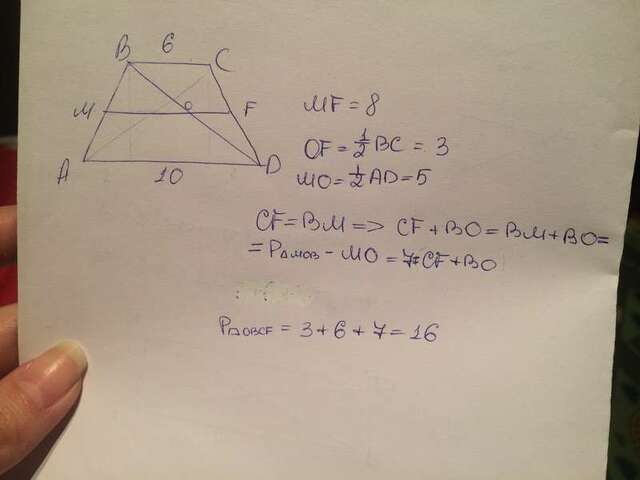 B 6 C
M O F
A 10 D
MF = 8
OF = 1/2 BC = 3
MO = 1/2 AD = 5
CF = BM => CF + BO = BM + BO =
= P△MOB - MO = 7 = CF + BO
P▱OBCF = 3 + 6 + 7 = 16